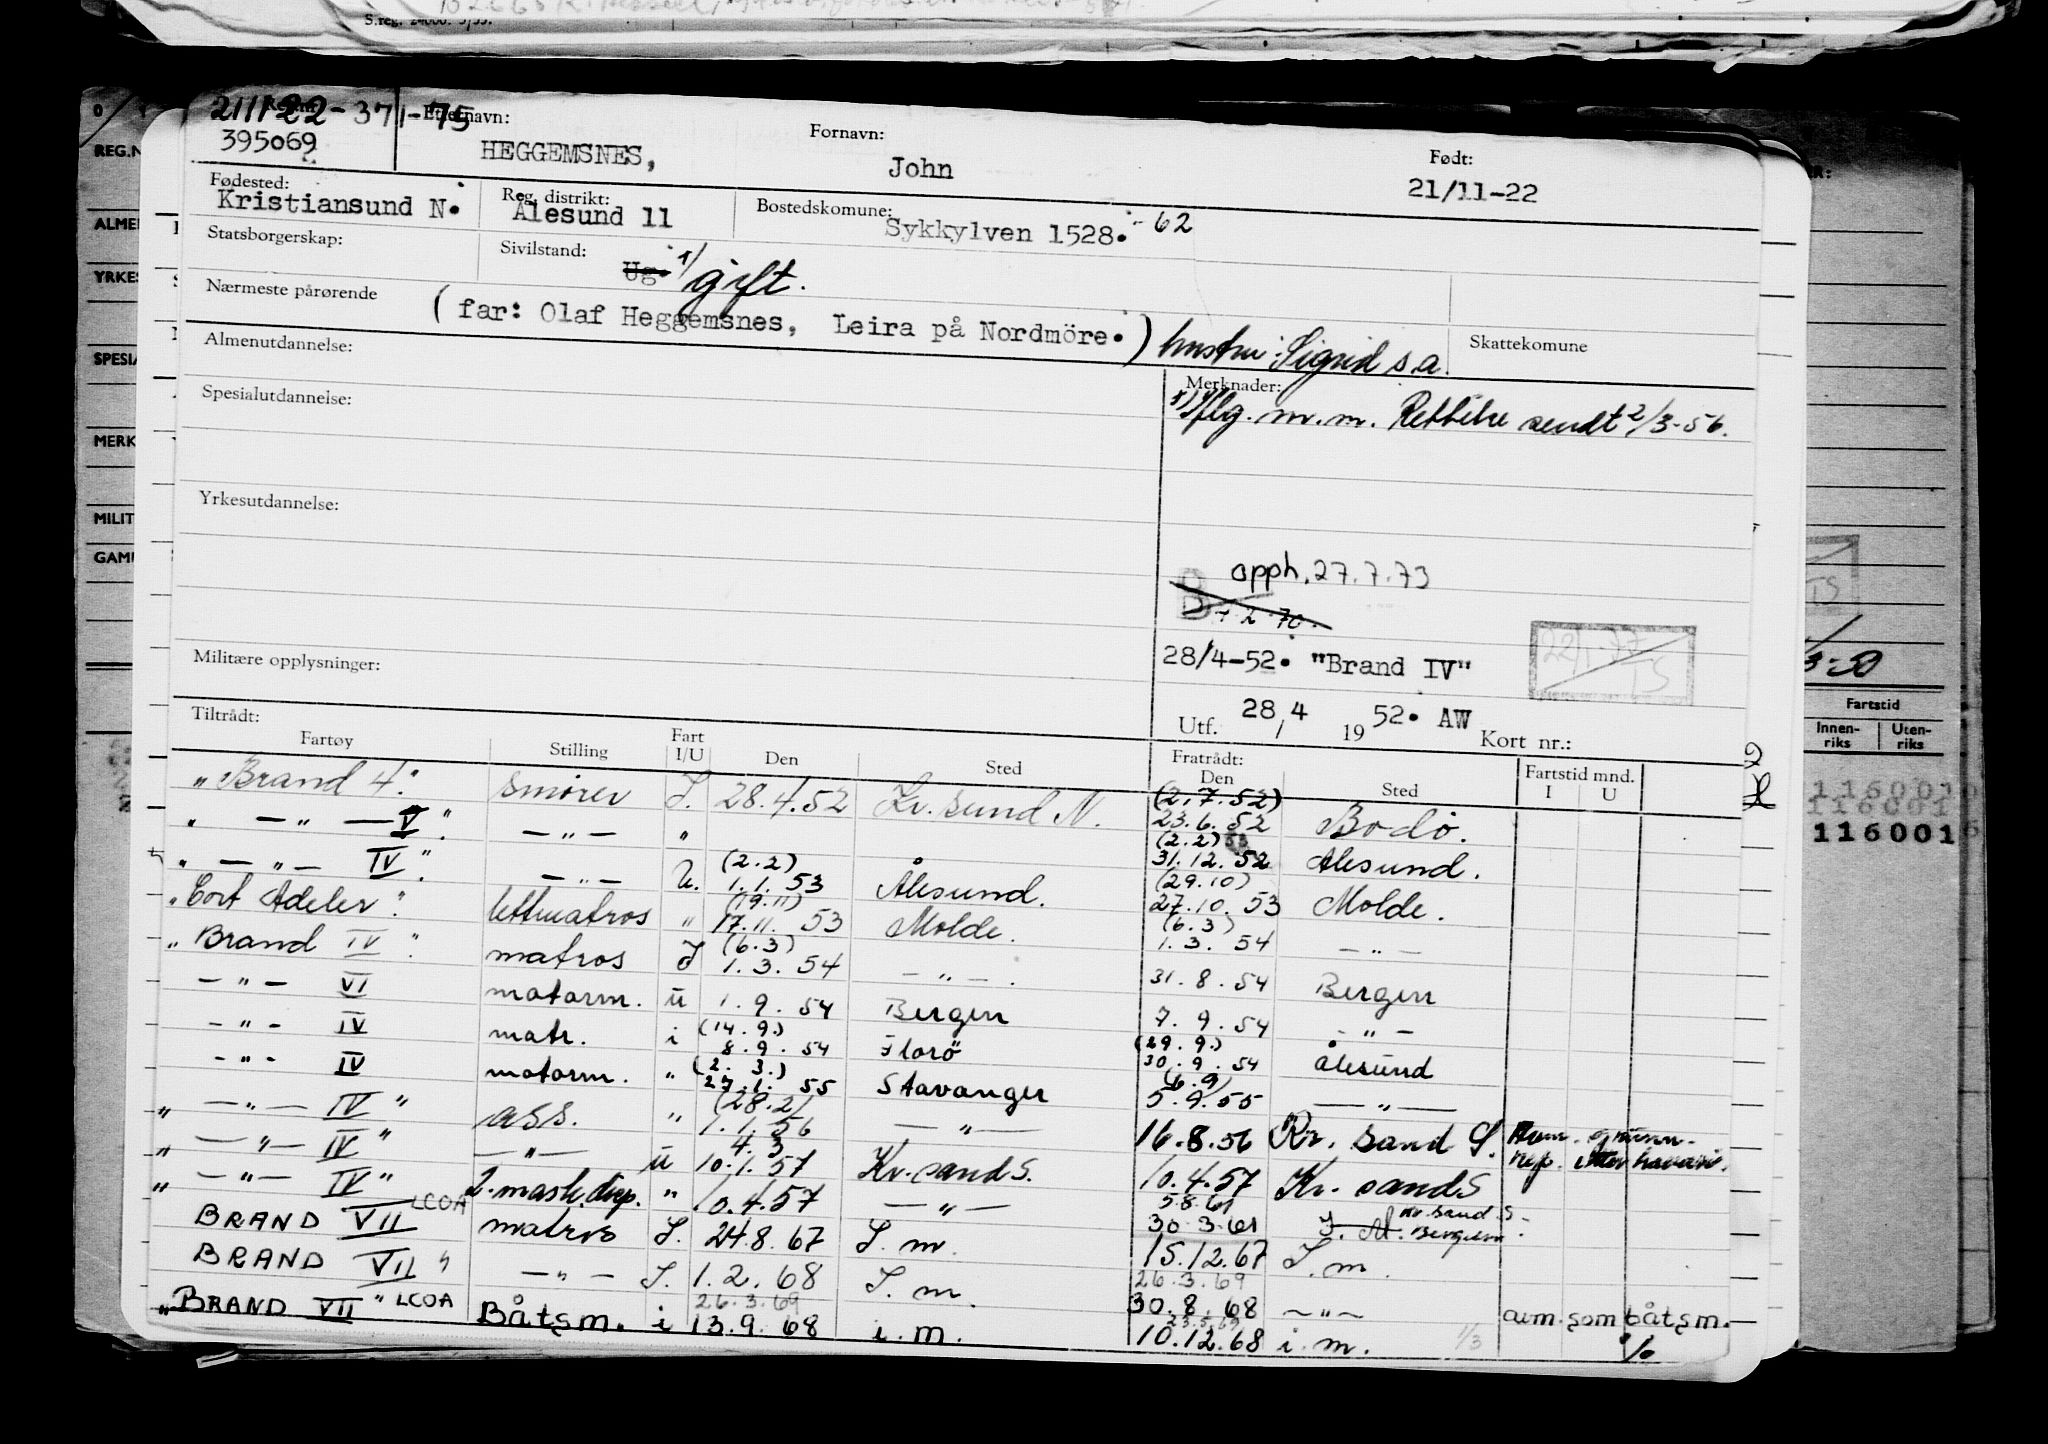 S.reg. 24000. 5/55.
211122-371-75
Etternavn: Fornavn: Født:
395069 HEGGEMSNES, John 21/11-22
Fødested: Reg. distrikt: Bostedskomune:
Kristiansund N. Ålesund 11 Sykkylven 1528.-62
Statsborgerskap: Sivilstand: Ug. 1/ gift.
Nærmeste pårørende (far: Olaf Heggemsnes, Leira på Nordmöre.) hustru: Sigrid s.a.
Skattekomune
Almenutdannelse:
Merknader:
Spesialutdannelse:
1) Iflg. m.m. Rettelse sendt 2/3-56.
Yrkesutdannelse:
opph. 27.7.73
28/4-52. "Brand IV"
Militære opplysninger:
Utf. 28/4 1952. AW Kort nr.:
Tiltrådt: Fratrådt:
Fartøy Stilling Fart I/U Den Sted Den Sted Fartstid mnd. I U
"Brand 4." smører I. 28.4.52 Kr.sund N. (2.7.52) 23.6.52 Bodø.
" —"— V". —"— " (2.2) 53 31.12.52 Ålesund.
" —"— IV". —"— U. (2.2) 1.1.53 Ålesund. (29.10) 27.10.53 Molde.
"Cort Adeler". lettmatros " (19.11) 17.11.53 Molde. (6.3) 1.3.54 —"—
"Brand IV". matros I (6.3) 1.3.54 —"—. 31.8.54 Bergen
—"— VI motorm. u 1.9.54 Bergen 7.9.54 —"—
—"— IV matr. i (14.9.) 8.9.54 Florö (29.9.) 30.9.54 Ålesund
—"— IV motorm. " (2.3.) 27.1.55 Stavanger (6.9) 5.9.55 —"—
" —"— IV" ass. " (28.2) 1.1.56 —"— 16.8.56 Kr.sand S.
" —"— IV" —"— u 4.3 10.1.57 Kr.sand S. 10.4.57 Kr.sand S
" —"— IV" 2.mask. " 10.4.57 —"— 5.8.61 30.3.61 Kr.sand S Bergen
BRAND VII LCOA matros I. 24.8.67 I.m. 15.12.67 I.m.
BRAND VII" —"— I. 1.2.68 I.m. 26.3.69 30.8.68 —"— aum. som båtsm.
"BRAND VII" LCOA Båtsm. i 26.3.69 13.9.68 i.m. 23.5.69 10.12.68 i.m. 1/3
REG.N
ALME
YRKES
SPESIA
MERK
MILIT
GAM
Fartstid
Innenriks Utenriks
116001
116001
116001